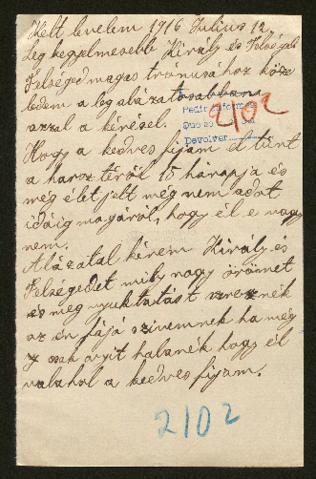 Kelt levelem 1916 Július 12.
Leg kegyelmesebb Király és Felség
Felséged magas trónusához köze
ledem a leg alázatosabban
azzal a kérésel.
Pedir informes
2102
Devolver
Hogy a kedves fijam el tünt
a harcz térről 15 hónapja és
még élet jelt még nem adot
idáig magáról, hogy él e vagy
nem.
Alázatal kérem Király és
Felségedet mily nagy örömet
és meg nyuktatást szereznék
az én fájó szivemnek ha még
csak anyit halanék hogy él
valahol a kedves fijam.
2102